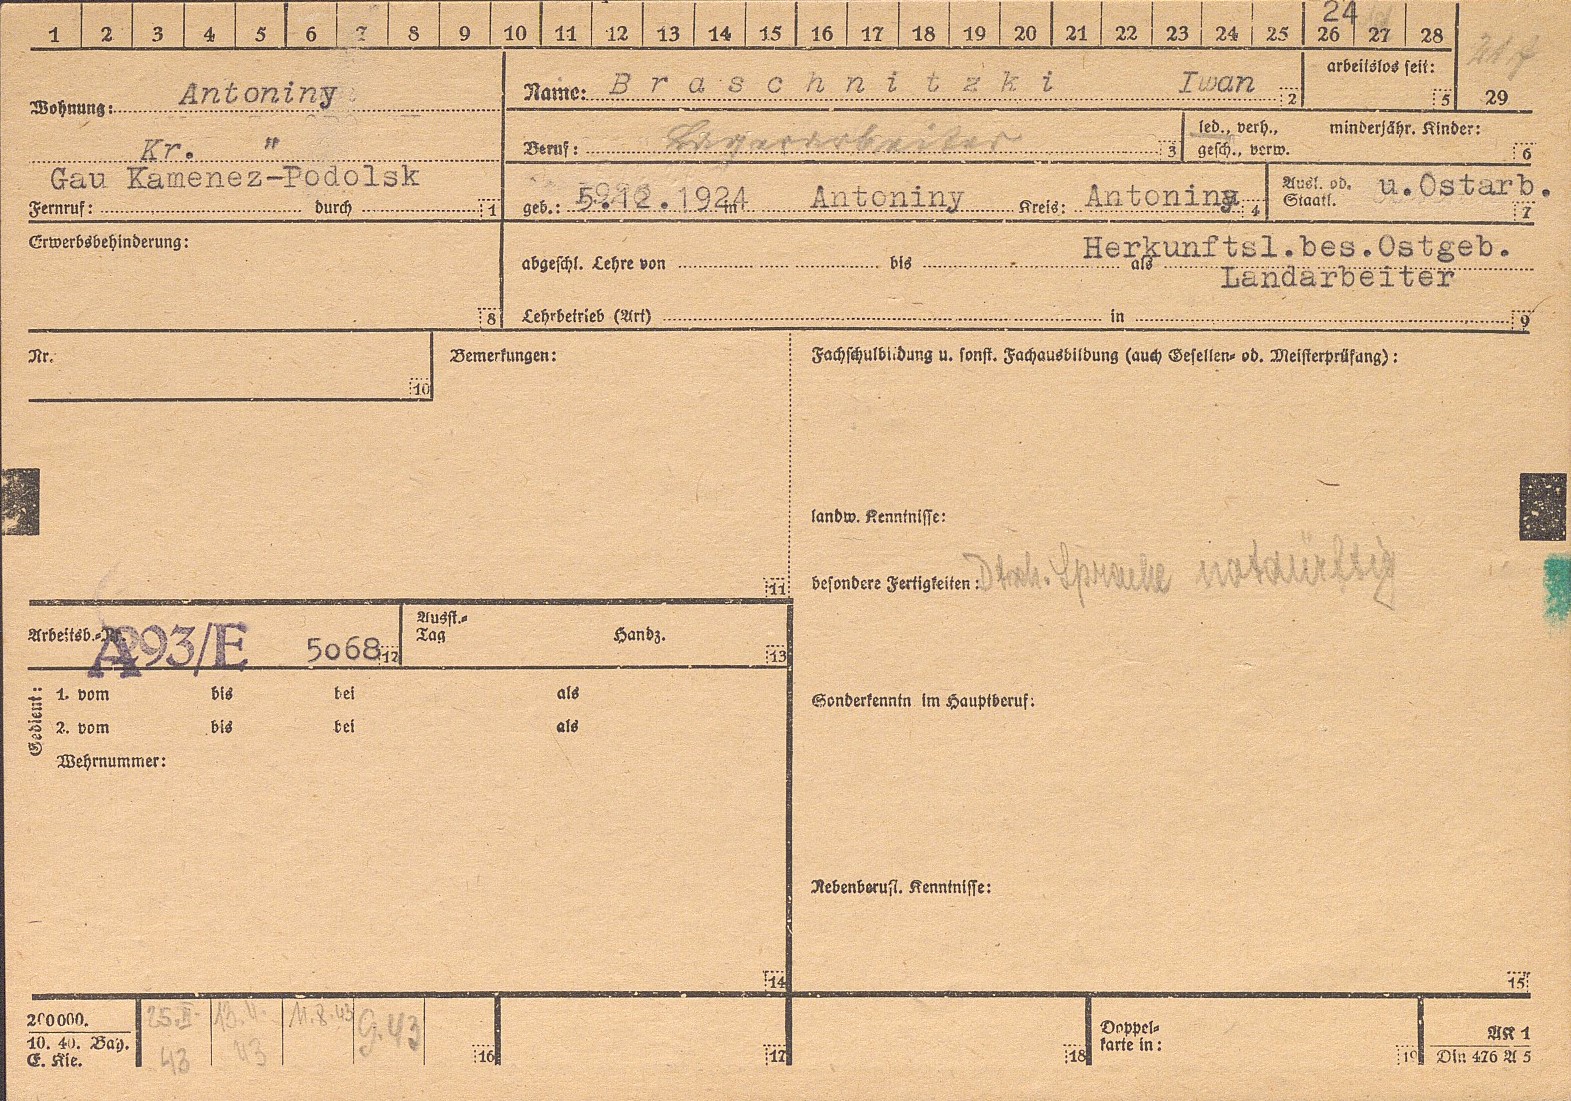 24
1 2 3 4 5 6 7 8 9 10 11 12 13 14 15 16 17 18 19 20 21 22 23 24 25 26 27 28 29
Wohnung: Antoniny
Kr. "
Gau Kamenez-Podolsk
Fernruf: durch 1
Name: Braschnitzki Iwan 2
arbeitslos seit: 5
Beruf: Lagerarbeiter 3
led., verh., gesch., verw.
minderjähr. Kinder: 6
geb.: 5.12.1924 in Antoniny Kreis: Antoniny 4
Ausl. od. Staatl. u.Ostarb. 7
Erwerbsbehinderung: 8
Herkunftsl.bes.Ostgeb.
abgeschl. Lehre von bis als Landarbeiter
Lehrbetrieb (Art) in 9
Nr. 10
Bemerkungen: 11
Fachschulbildung u. sonst. Fachausbildung (auch Gesellen- od. Meisterprüfung):
landw. Kenntnisse:
besondere Fertigkeiten: Dtsch. Sprache notdürftig
Arbeitsb.-Nr. A 293/E 5068 12
Ausst.-Tag Handz. 13
Gedient:
1. vom bis bei als
2. vom bis bei als
Wehrnummer:
14
Sonderkenntn im Hauptberuf:
Nebenberufl. Kenntnisse:
15
200000.
10. 40. Bay.
E. Kie.
25.II. 43
13.4. 43
11.8.43
9.43
16 17 18
Doppel-
karte in: 19
AK 1
Din 476 A 5